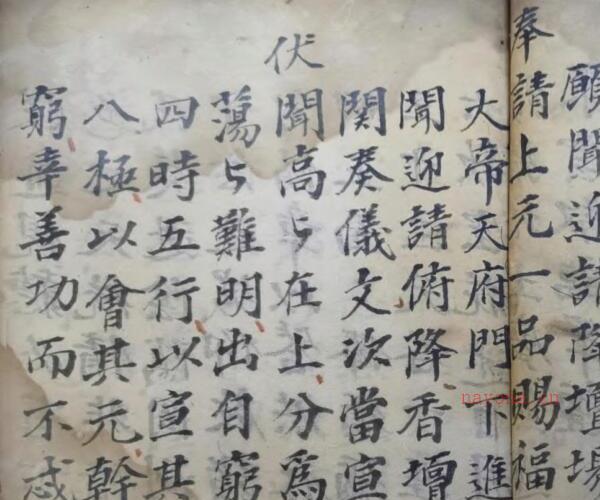 願聞迎請降壇場
奉請上元一品賜福
大帝天府門下進
聞迎請俯降香壇
関奏儀文次當宣
伏聞高ㄣ在上分為
蕩ㄣ難明出自窮
四時五行以宣其
八極以會其元幹
窮幸善功而不忒